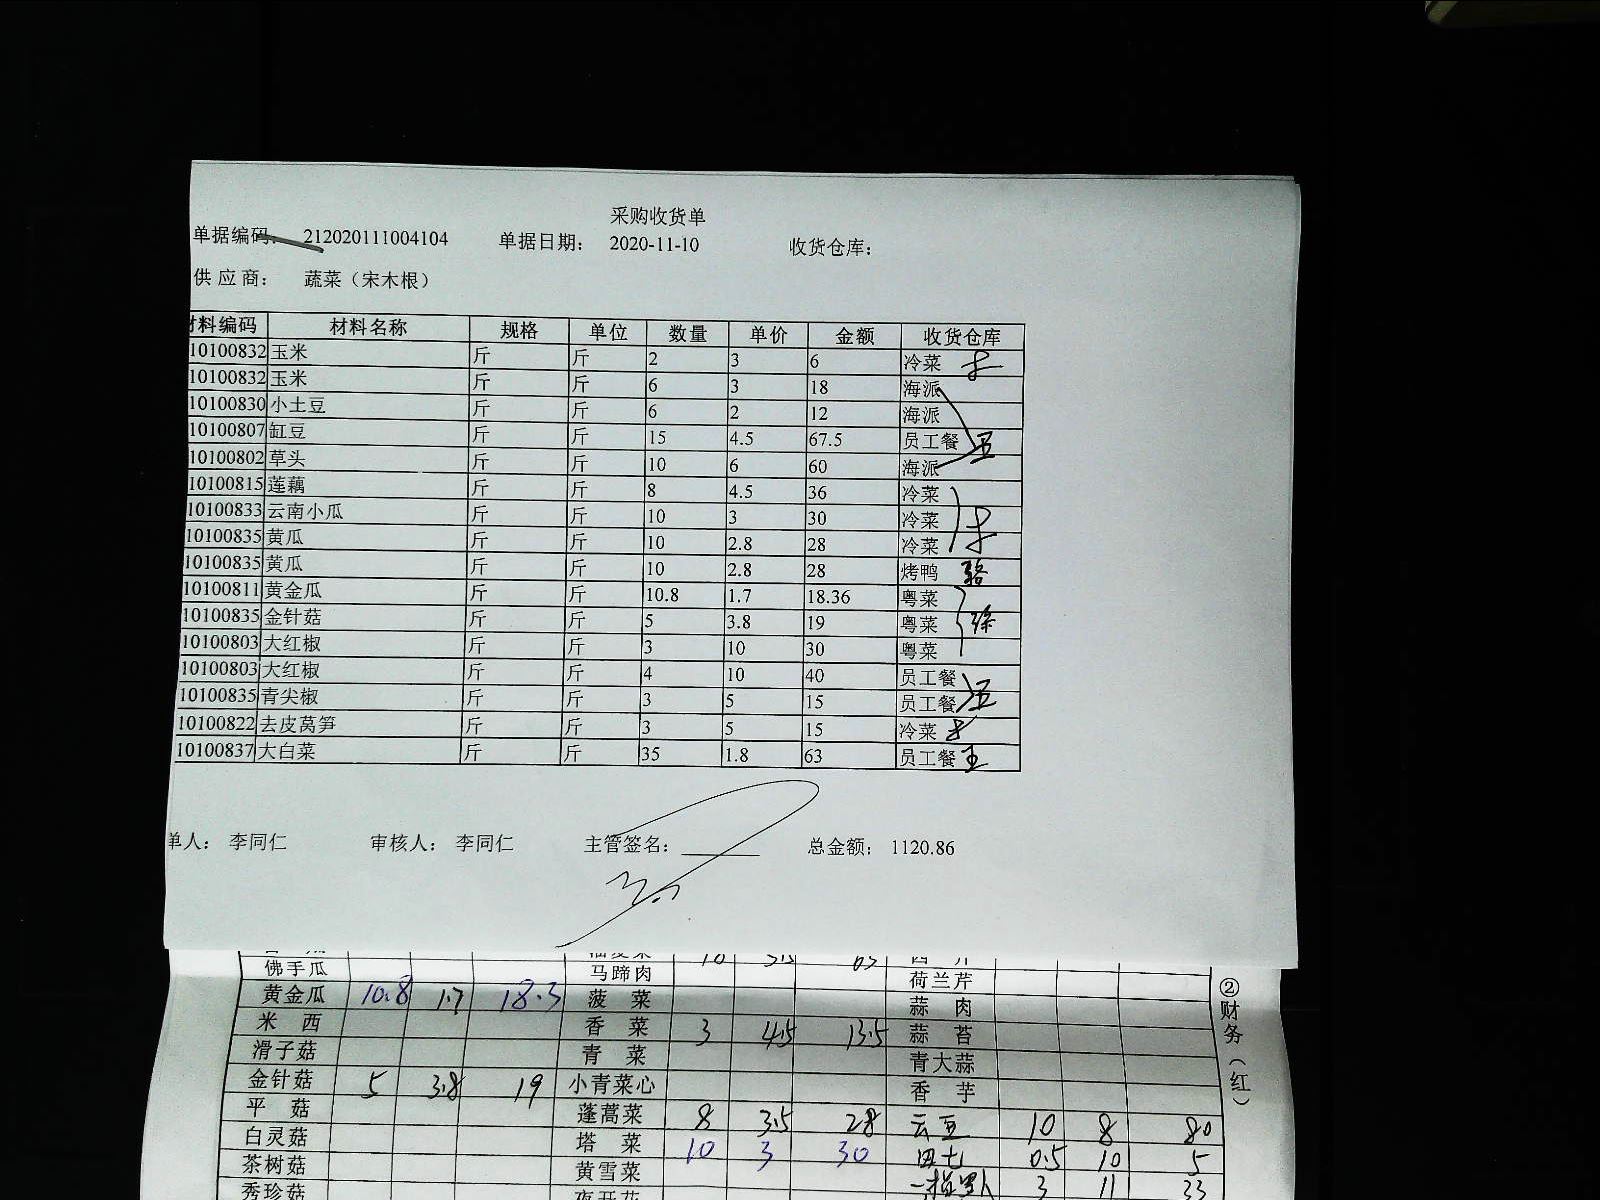 采购收货单
单据编码： 212020111004104 单据日期： 2020-11-10 收货仓库：
供 应 商： 蔬菜（宋木根）
材料编码 材料名称 规格 单位 数量 单价 金额 收货仓库
10100832 玉米 斤 斤 2 3 6 冷菜
10100832 玉米 斤 斤 6 3 18 海派
10100830 小土豆 斤 斤 6 2 12 海派
10100807 缸豆 斤 斤 15 4.5 67.5 员工餐
10100802 草头 斤 斤 10 6 60 海派
10100815 莲藕 斤 斤 8 4.5 36 冷菜
10100833 云南小瓜 斤 斤 10 3 30 冷菜
10100835 黄瓜 斤 斤 10 2.8 28 冷菜
10100835 黄瓜 斤 斤 10 2.8 28 烤鸭
10100811 黄金瓜 斤 斤 10.8 1.7 18.36 粤菜
10100835 金针菇 斤 斤 5 3.8 19 粤菜
10100803 大红椒 斤 斤 3 10 30 粤菜
10100803 大红椒 斤 斤 4 10 40 员工餐
10100835 青尖椒 斤 斤 3 5 15 员工餐
10100822 去皮莴笋 斤 斤 3 5 15 冷菜
10100837 大白菜 斤 斤 35 1.8 63 员工餐 王
单人： 李同仁 审核人： 李同仁 主管签名： 总金额： 1120.86
佛手瓜 马蹄肉 荷兰芹
黄金瓜 10.8 1.7 18.3 菠 菜 蒜 肉
米 西 香 菜 3 4.5 13.5 蒜 苔
滑子菇 青 菜 青大蒜
金针菇 5 3.8 19 小青菜心 香 芋
平 菇 蓬蒿菜 8 3.5 28 云豆 10 8 80
白灵菇 塔 菜 10 3 30 0.5 10 5
茶树菇 黄雪菜 3 11 33
秀珍菇
②财务（红）